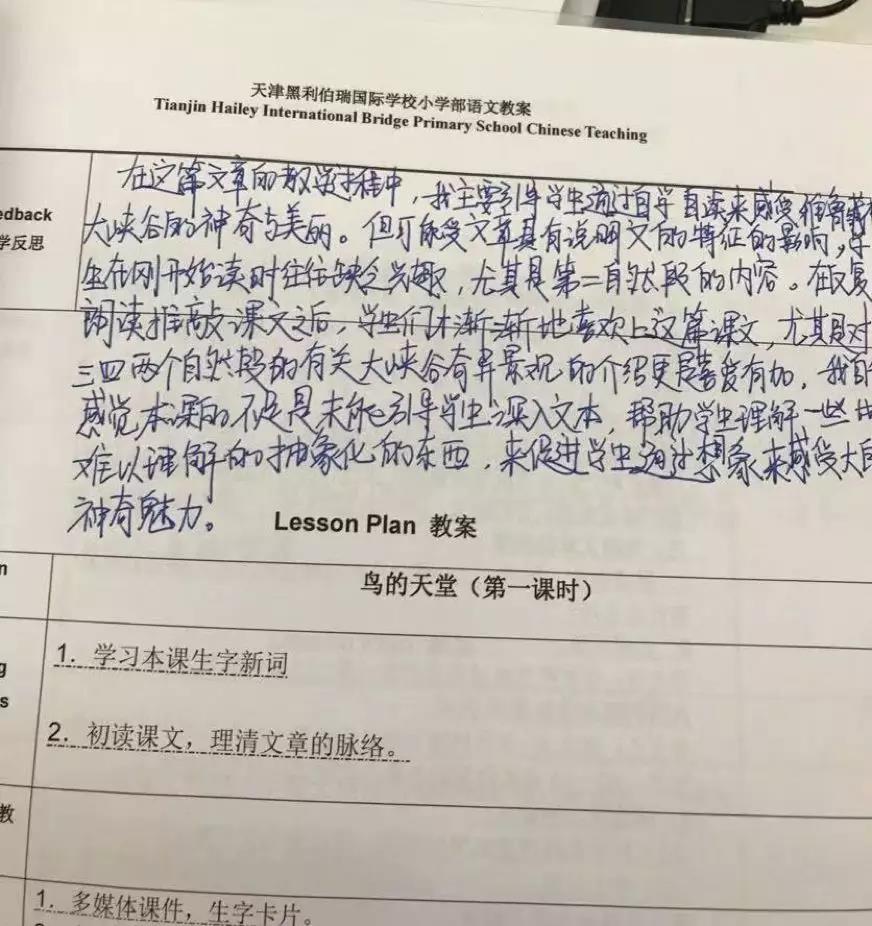 天津黑利伯瑞国际学校小学部语文教案
Tianjin Hailey International Bridge Primary School Chinese Teaching
edback
学反思
在这篇文章的教学过程中，我主要引导学生通过自学自读来感受雅鲁藏布
大峡谷的神奇与美丽。但可能受文章具有说明文的特征的影响，学
生在刚开始读时往往缺乏兴趣，尤其是第二自然段的内容。在反复
朗读推敲课文之后，学生们才渐渐地喜欢上这篇课文，尤其是对
三四两个自然段的有关大峡谷奇异景观的介绍更是喜爱有加，我自
感觉本课的不足是未能引导学生深入文本，帮助学生理解一些
难以理解的抽象化的东西，来促进学生通过想象来感受大自
神奇魅力。
Lesson Plan 教案
n
鸟的天堂（第一课时）
g
s
1. 学习本课生字新词
2. 初读课文，理清文章的脉络。
教
1. 多媒体课件，生字卡片。